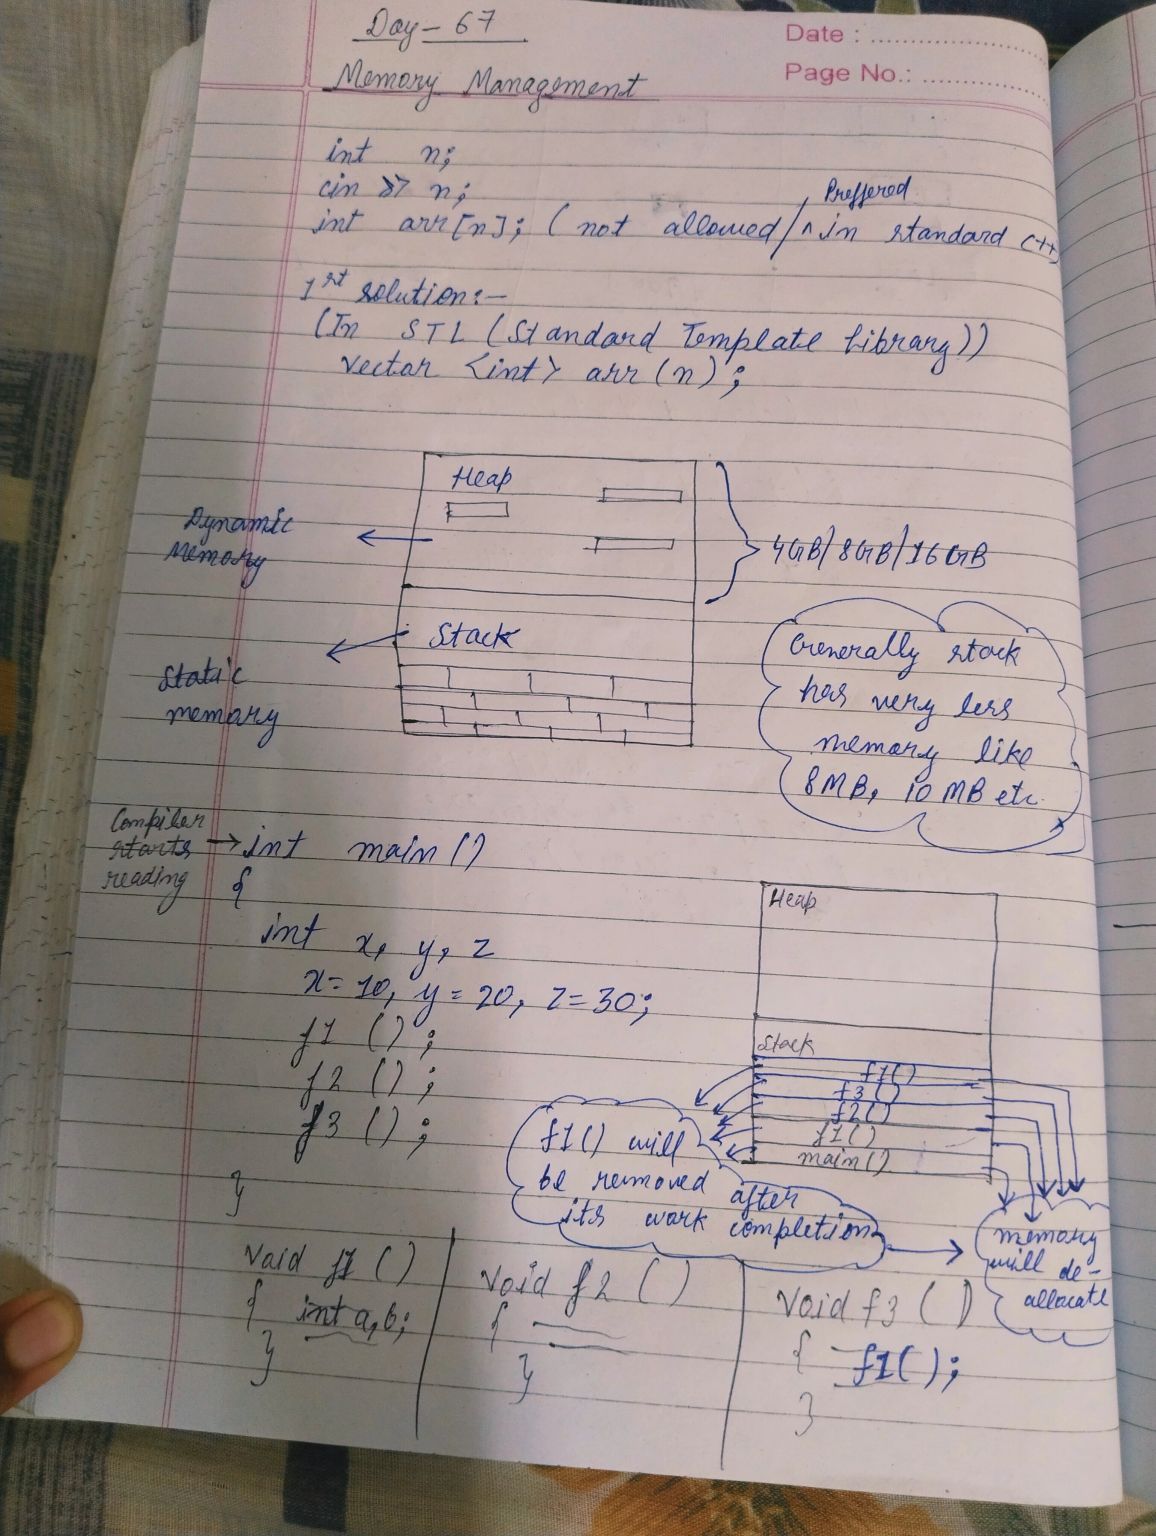 Day - 67
Date :
Page No.:
Memory Management
int n;
cin >> n;
Preffered
int arr[n]; ( not allowed / ^ in standard C++
1st solution:-
(In STL (Standard Template Library))
vector <int> arr (n);
Heap
Dynamic
Memory
4GB/8GB/16GB
Stack
Static
memory
Generally stack
has very less
memory like
8MB, 10 MB etc.
Compiler
starts
reading
→ int main ()
{
int x, y, z
x= 10, y = 20, z = 30;
f1 ();
f2 ();
f3 ();
}
Heap
Stack
f1()
f3()
f2()
f1()
main()
f1() will
be removed after
its work completion
memory
will de-
allocate
void f1 ()
{ int a, b;
}
void f2 ()
{
}
void f3 ()
{ f1();
}